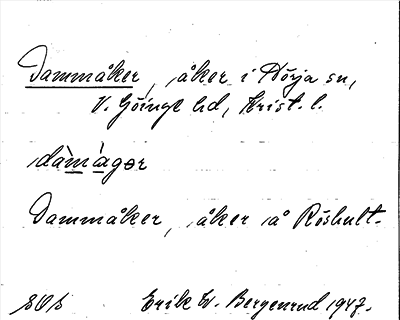 Dammåker, åker i Nörja sn,
V. Göinge hd, Krist. l.
dàm̲ágər
Dammåker, åker å Röshult.
SOs Erik W. Bergenrud 1947.